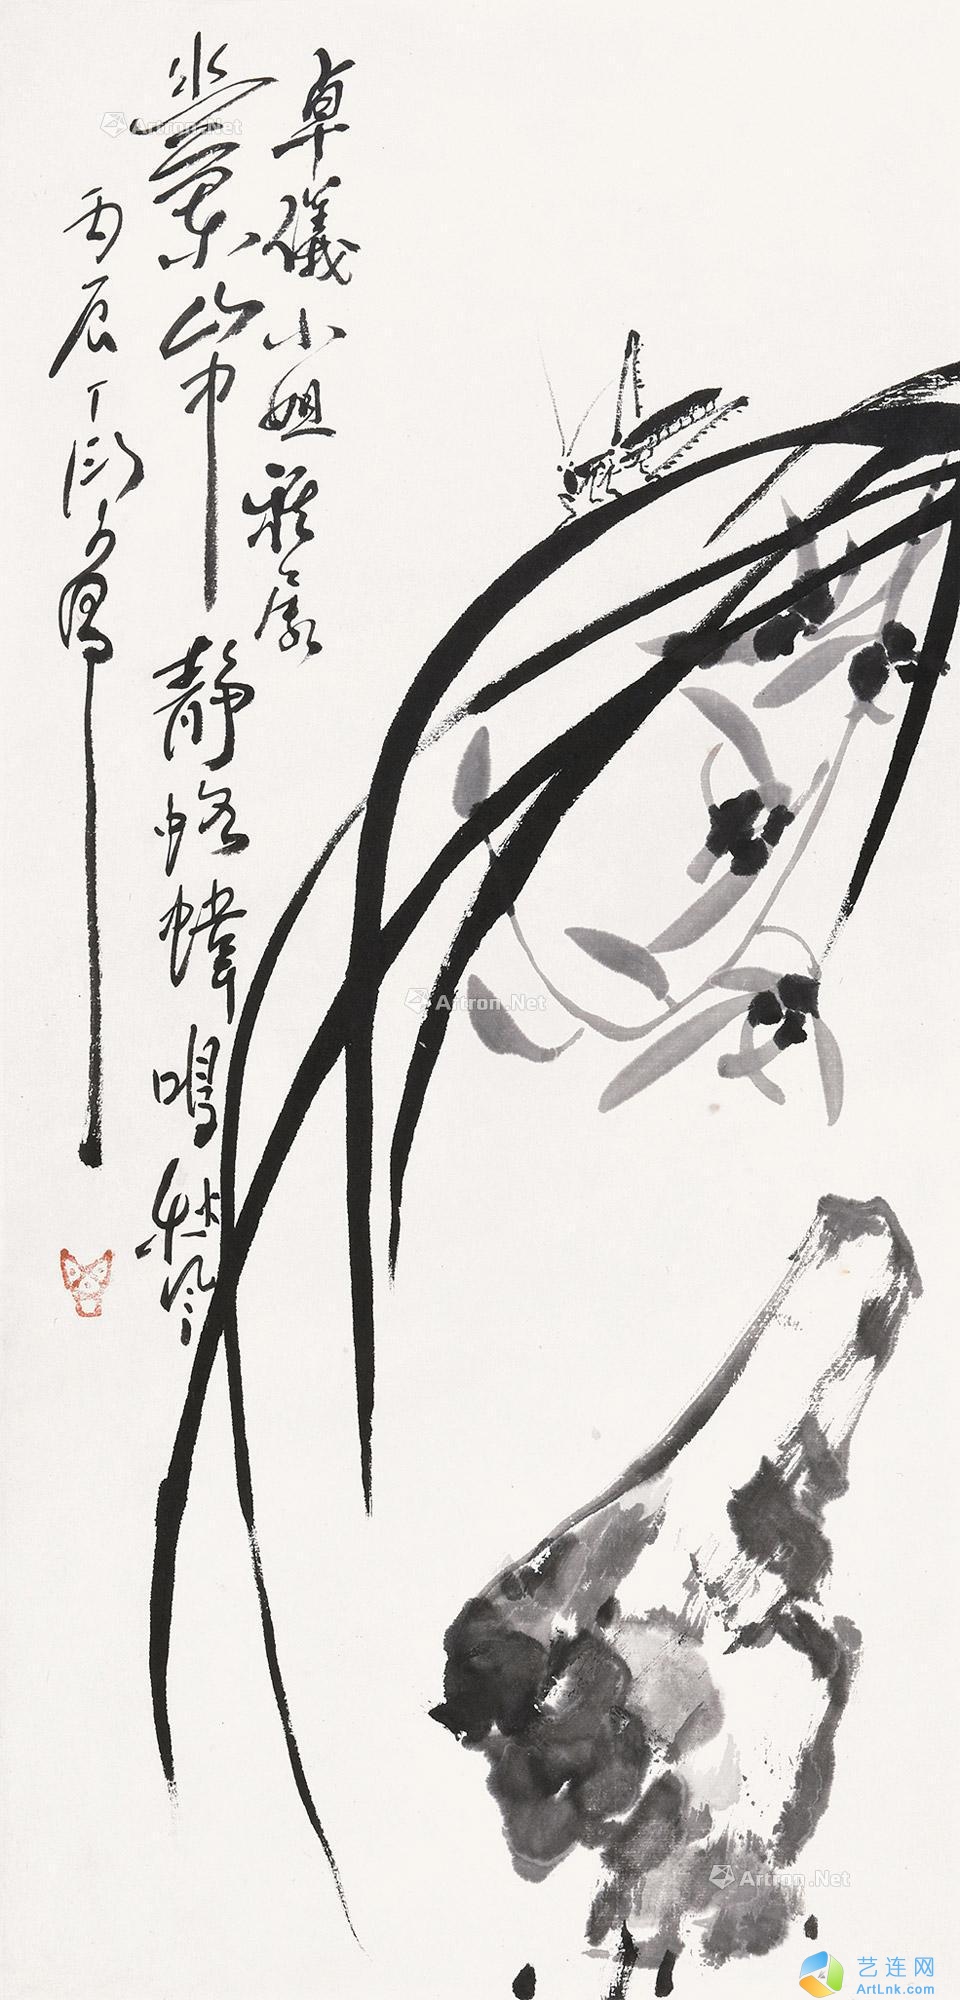 卓儀小姐雅屬
幽蘭山中靜蛒 鳴秋風
丙辰丁衍庸寫
Artron.Net
Artron.Net
Artron.Net
艺连网
ArtLnk.com